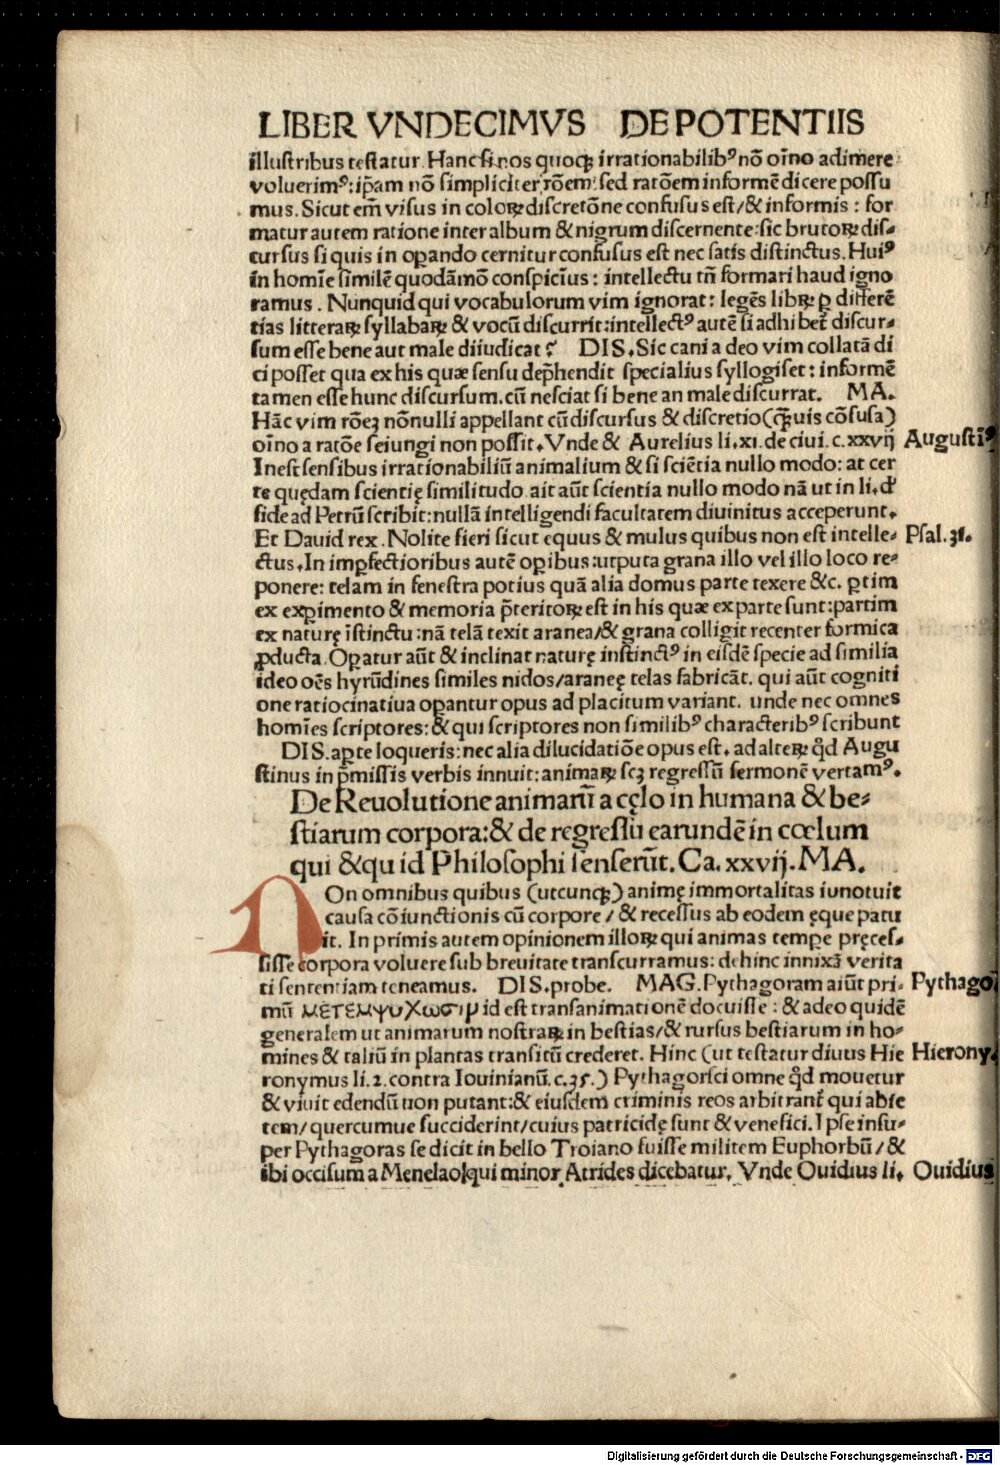 LIBER VNDECIMVS DE POTENTIIS
illustribus testatur. Hanc si nos quoqꝫ irrationabilibꝰ nõ oĩno adimere
voluerimꝰ: ip̃am nõ simpliciter rõem: sed ratõem informẽ dicere possu
mus. Sicut em̃ visus in coloꝝ discretõne confusus est/& informis : for
matur autem ratione inter album & nigrum discernente: sic brutoꝝ dis⸗
cursus si quis in oꝑando cernitur confusus est nec satis distinctus. Huiꝰ
in homĩe similẽ quodãmõ conspicĩus : intellectu tñ formari haud igno
ramus . Nunquid qui vocabulorum vim ignorat: legẽs libꝝ ꝑ differẽ
tias litteraꝝ syllabaꝝ & vocũ discurrit: intellectꝰ autẽ si adhibet̃ discur⸗
sum esse bene aut male diiudicat? DIS. Sic cani a deo vim collatã di
ci posset qua ex his quæ sensu dep̃hendit specialius syllogiset: informẽ
tamen esse hunc discursum. cũ nesciat si bene an male discurrat. MA.
Hãc vim rõeꝫ nõnulli appellant cũ discursus & discretio (q̃uis cõfusa)
oĩno a ratõe seiungi non possit. Vnde & Aurelius li. xi. de ciui. c. xxvij Augustiꝰ
Inest sensibus irrationabiliũ animalium & si sciẽtia nullo modo: at cer
te quędam scientię similitudo. ait aũt scientia nullo modo nã ut in li. d'
fide ad Petrũ scribit: nullã intelligendi facultatem diuinitus acceperunt.
Et Dauid rex. Nolite fieri sicut equus & mulus quibus non est intelle⸗ Psal. 31.
ctus. In imꝑfectioribus autẽ oꝑibus: utputa grana illo vel illo loco re⸗
ponere: telam in fenestra potius quã alia domus parte texere &c. ꝑtim
ex exꝑimento & memoria p̃teritoꝝ est in his quæ ex parte sunt: partim
ex naturę ĩstinctu: nã telã texit aranea/& grana colligit recenter formica
ꝓducta. Oꝑatur aũt & inclinat naturę instinctꝰ in eisdẽ specie ad similia
ideo oẽs hyrũdines similes nidos/araneę telas fabricãt. qui aũt cogniti
one ratiocinatiua oꝑantur opus ad placitum variant. unde nec omnes
homĩes scriptores: & qui scriptores non similibꝰ characteribꝰ scribunt
DIS. aꝑte loqueris: nec alia dilucidatiõe opus est. ad alteꝝ q̃d Augu
stinus in p̃missis verbis innuit: animaꝝ scꝫ regressũ sermonẽ vertamꝰ.
De Reuolutione animarũ a cęlo in humana & be⸗
stiarum corpora: & de regressu earundẽ in cœlum
qui & quid Philosophi senserũt. Ca. xxvij. MA.
NOn omnibus quibus (utcunqꝫ) animę immortalitas iunotuit
causa cõiunctionis cũ corpore / & recessus ab eodem ęque patu
it. In primis autem opinionem illoꝝ qui animas tempe pręces⸗
sisse corpora voluere sub breuitate transcurramus: dehinc innixã verita
ti sententiam teneamus. DIS. probe. MAG. Pythagoram aiũt pri⸗ Pythago
mũ μετεμψυχωσιν id est transanimationẽ docuisse : & adeo quidẽ
generalem ut animarum nostraꝝ in bestias/& rursus bestiarum in ho⸗
mines & taliũ in plantas transitũ crederet. Hinc (ut testatur diuus Hie Hierony.
ronymus li. 2. contra Iouinianũ. c. 35.) Pythagorici omne q̃d mouetur
& viuit edendũ non putant: & eiusdem criminis reos arbitrant̃ qui abie
tem/ quercumue succiderint/ cuius patricidę sunt & venefici. Ipse insu⸗
per Pythagoras se dicit in bello Troiano fuisse militem Euphorbũ/ &
ibi occisum a Menelao/qui minor Atrides dicebatur. Vnde Ouidius li. Ouidius
Digitalisierung gefördert durch die Deutsche Forschungsgemeinschaft - DFG